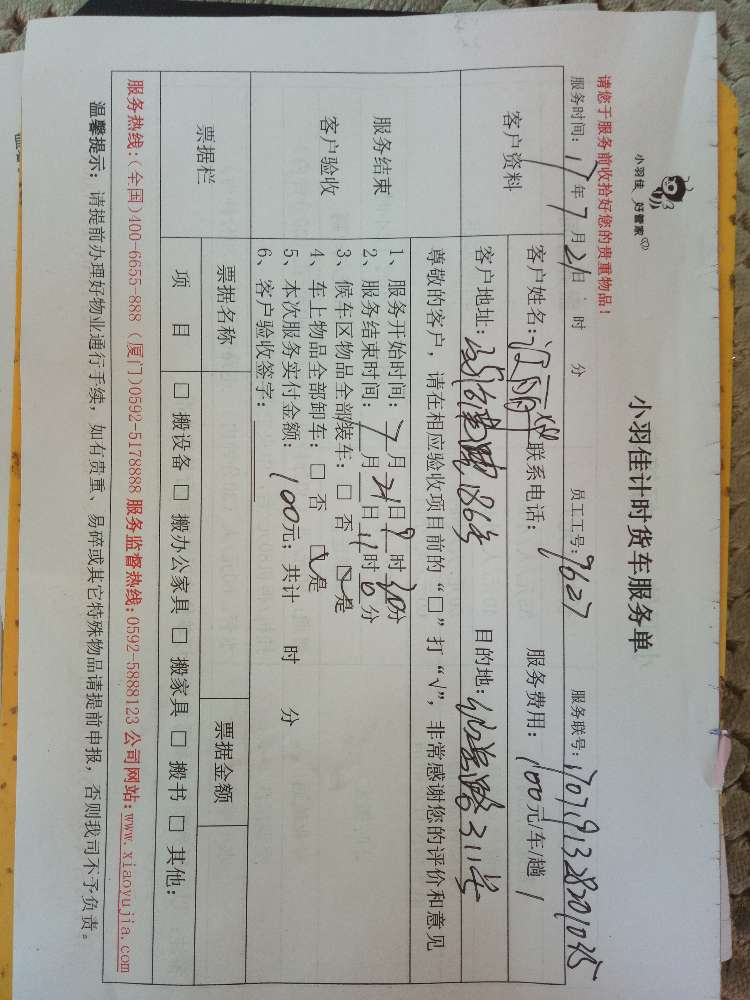 小羽佳 好管家
小羽佳计时货车服务单
请您于服务前收拾好您的贵重物品!
服务时间: 17年7月21日 时 分 员工工号: 9627 服务联号:
客户资料
客户姓名: 联系电话: 服务费用: 100元/车/趟 1
客户地址: 186号 目的地: 路311号
尊敬的客户,请在相应验收项目前的“□”打“√”,非常感谢您的评价和意见
服务结束
客户验收
1、服务开始时间: 7月21日9时30分
2、服务结束时间: 7月 日11时0分
3、候车区物品全部装车: □ 否 ☑是
4、车上物品全部卸车: □ 否 ☑是
5、本次服务实付金额: 100元; 共计 时 分
6、客户验收签字:
票据栏
票据名称 票据金额
项 目 □ 搬设备 □ 搬办公家具 □ 搬家具 □ 搬书 □ 其他:
服务热线:(全国)400-6655-888 (厦门)0592-5178888 服务监督热线:0592-5888123 公司网站:www.xiaoyujia.com
温馨提示: 请提前办理好物业通行手续, 如有贵重、易碎或其它特殊物品请提前申报, 否则我司不予负责。